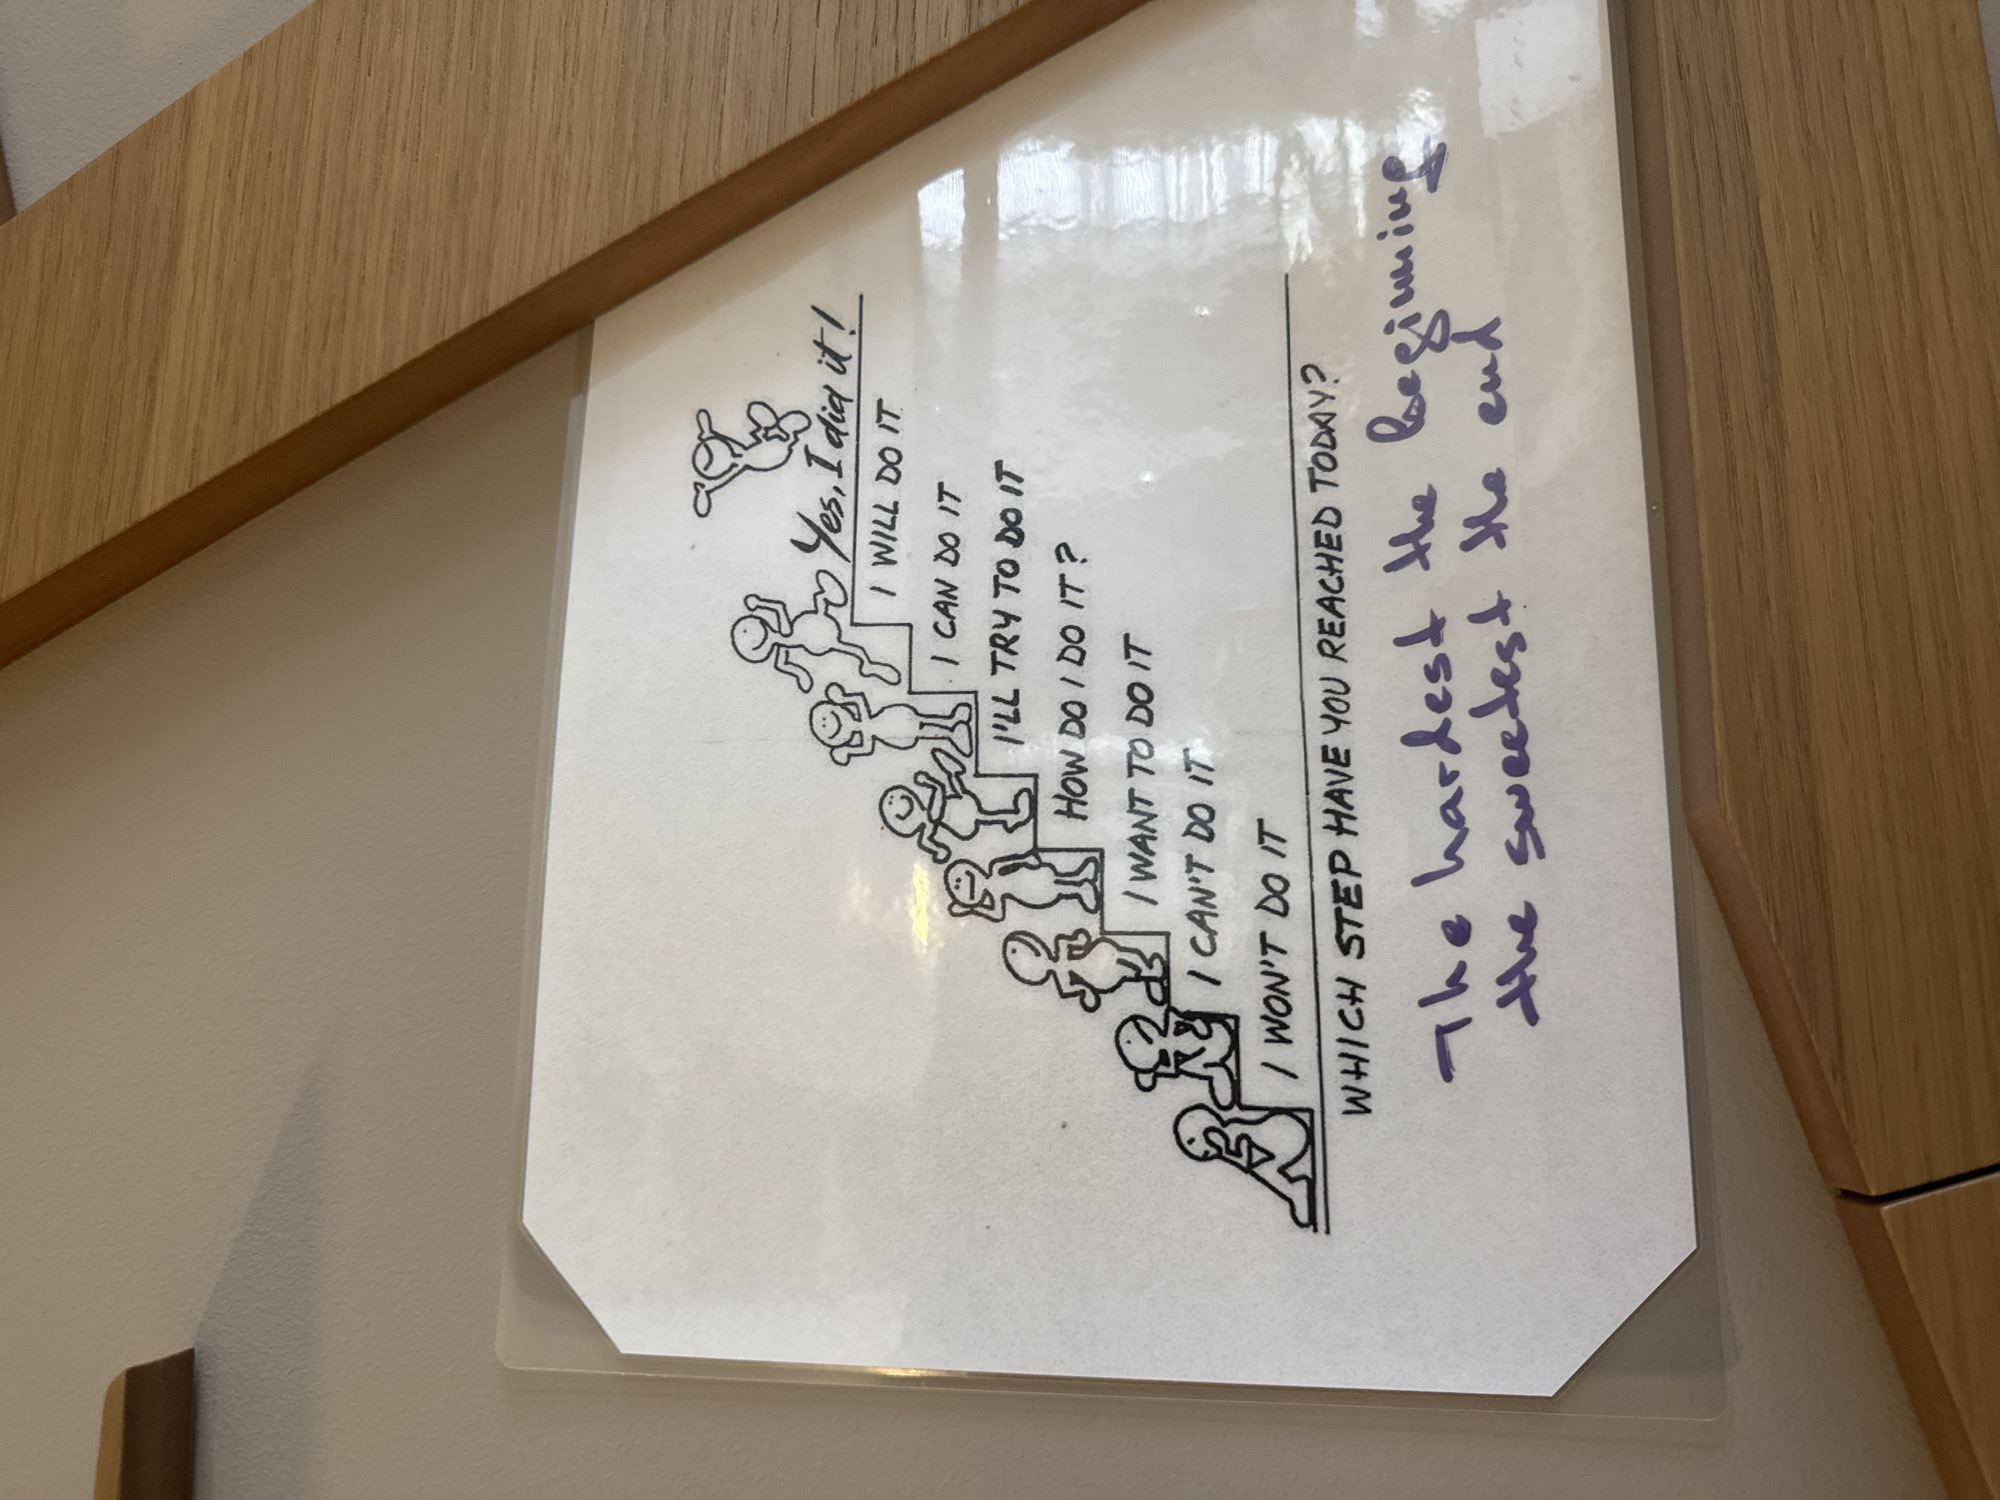 Yes, I did it!
I WILL DO IT
I CAN DO IT
I'LL TRY TO DO IT
HOW DO I DO IT?
I WANT TO DO IT
I CAN'T DO IT
I WON'T DO IT
WHICH STEP HAVE YOU REACHED TODAY?
The hardest the beginning
the sweetest the end